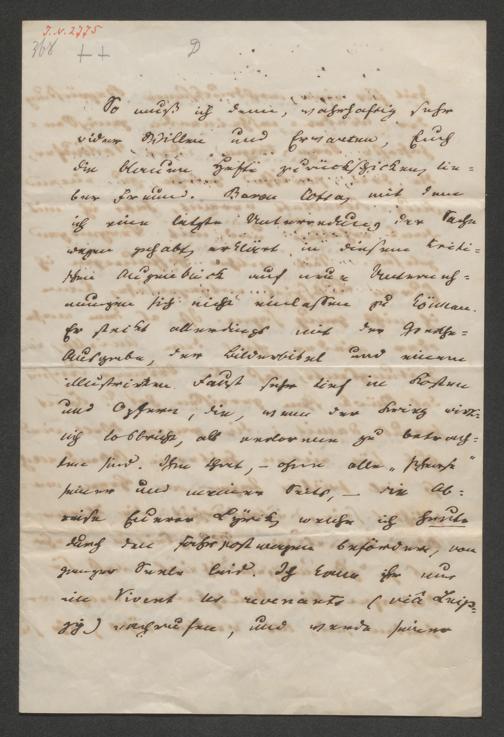 J. N. 2775
368 ++ D
So muß ich denn, wahrhaftig sehr
wider Willen und Erwarten, Euch
die blauen Hefte zurückschicken, lie-
ber Freund. Baron Cotta, mit dem
ich eine letzte Unterredung der Sache
wegen gehabt, erklärt in diesem kriti-
schen Augenblick auf neue Unterneh-
mungen sich nicht einlassen zu können.
Er steckt allerdings mit der Goethe-
Ausgabe, der Bilderbibel und einem
illustrirten Faust sehr tief in Kosten
und Opfern, die, wenn der Krieg wirk-
lich losbricht, als verloren zu betrach-
ten sind. Ihm thut, – ohne alle „Phrase“
seiner und meiner Seits, – die Ab-
reise Eurer Lyrik, welche ich heute
durch den Fahrpostwagen befördere, von
ganzer Seele leid. Ich kann ihr nur
ein Vivent les revenants (viâ Leip-
zig) nachrufen, und werde seiner